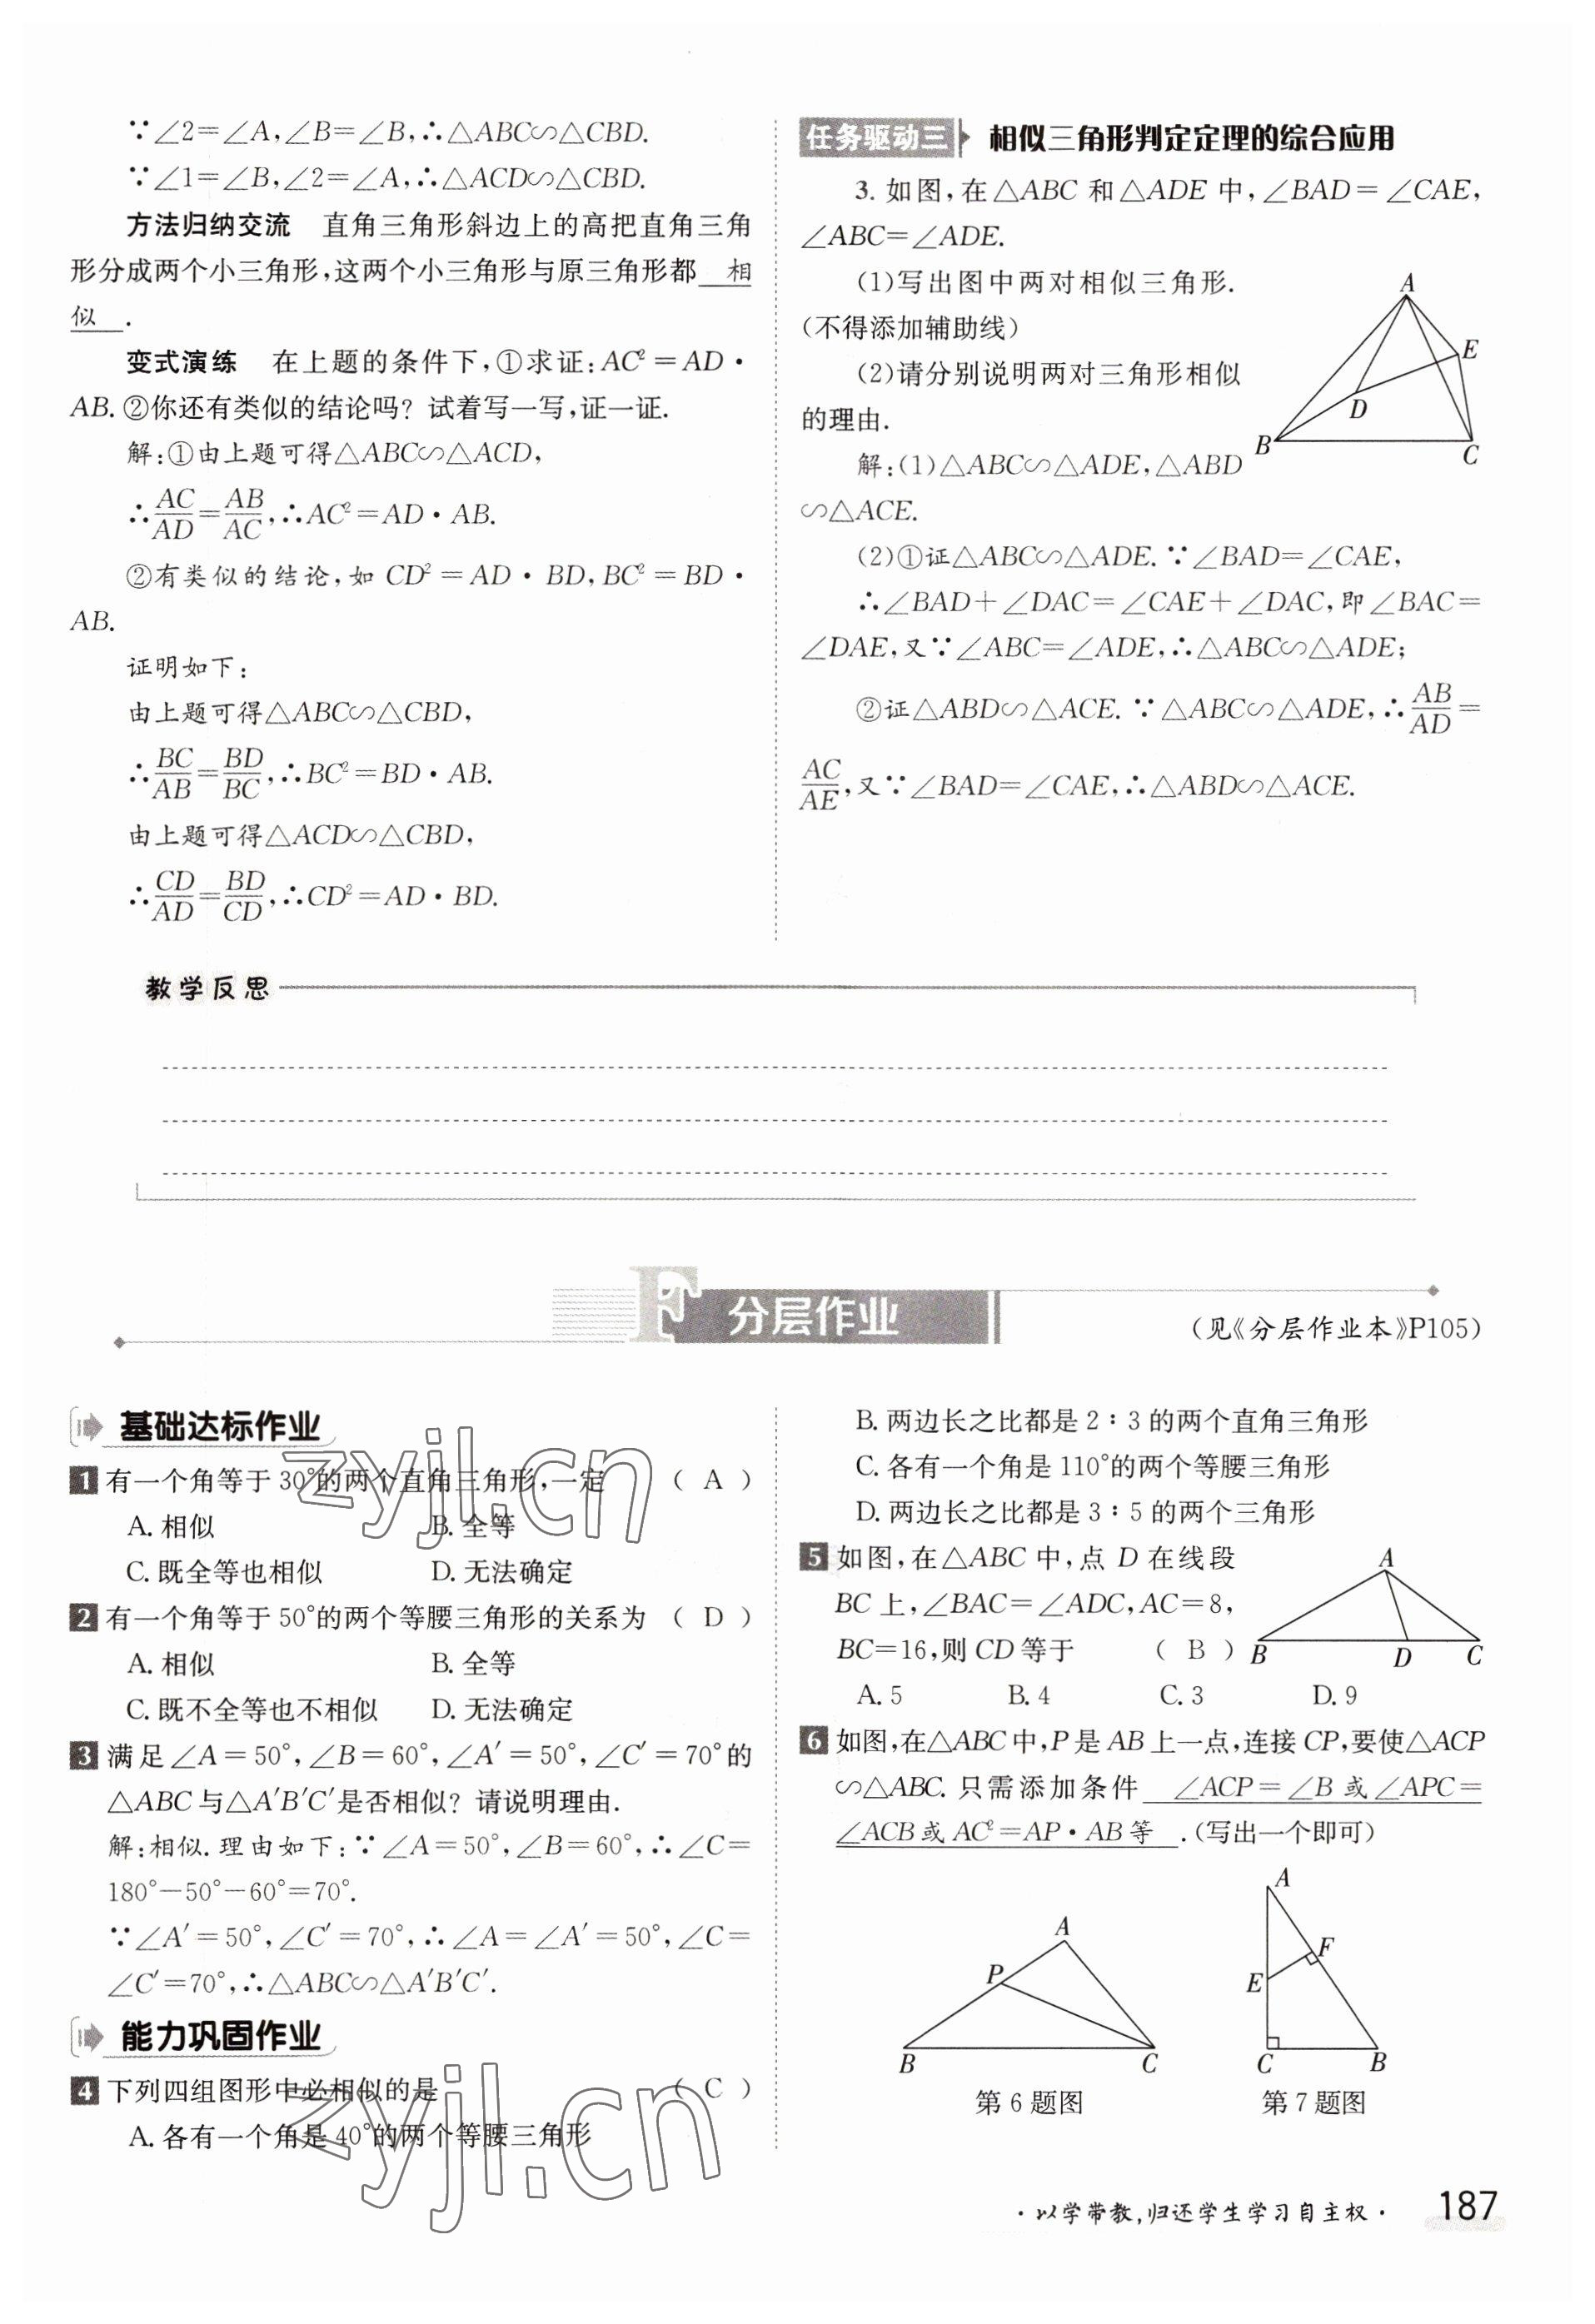 ∵∠2=∠A,∠B=∠B,∴△ABC∽△CBD.
∵∠1=∠B,∠2=∠A,∴△ACD∽△CBD.
方法归纳交流 直角三角形斜边上的高把直角三角
形分成两个小三角形,这两个小三角形与原三角形都 相
似 .
变式演练 在上题的条件下,①求证:AC²=AD·
AB.②你还有类似的结论吗?试着写一写,证一证.
解:①由上题可得△ABC∽△ACD,
∴AC/AD=AB/AC,∴AC²=AD·AB.
②有类似的结论,如CD²=AD·BD,BC²=BD·
AB.
证明如下:
由上题可得△ABC∽△CBD,
∴BC/AB=BD/BC,∴BC²=BD·AB.
由上题可得△ACD∽△CBD,
∴CD/AD=BD/CD,∴CD²=AD·BD.
任务驱动三 相似三角形判定定理的综合应用
3.如图,在△ABC和△ADE中,∠BAD=∠CAE,
∠ABC=∠ADE.
(1)写出图中两对相似三角形.
(不得添加辅助线)
(2)请分别说明两对三角形相似
的理由.
A
E
D
B
C
解:(1)△ABC∽△ADE,△ABD
∽△ACE.
(2)①证△ABC∽△ADE.∵∠BAD=∠CAE,
∴∠BAD+∠DAC=∠CAE+∠DAC,即∠BAC=
∠DAE,又∵∠ABC=∠ADE,∴△ABC∽△ADE;
②证△ABD∽△ACE.∵△ABC∽△ADE,∴AB/AD=
AC/AE,又∵∠BAD=∠CAE,∴△ABD∽△ACE.
教学反思
F 分层作业
(见《分层作业本》P105)
基础达标作业
1 有一个角等于30°的两个直角三角形,一定 ( A )
A.相似 B.全等
C.既全等也相似 D.无法确定
2 有一个角等于50°的两个等腰三角形的关系为 ( D )
A.相似 B.全等
C.既不全等也不相似 D.无法确定
3 满足∠A=50°,∠B=60°,∠A′=50°,∠C′=70°的
△ABC与△A′B′C′是否相似?请说明理由.
解:相似.理由如下:∵∠A=50°,∠B=60°,∴∠C=
180°-50°-60°=70°.
∵∠A′=50°,∠C′=70°,∴∠A=∠A′=50°,∠C=
∠C′=70°,∴△ABC∽△A′B′C′.
能力巩固作业
4 下列四组图形中必相似的是 ( C )
A.各有一个角是40°的两个等腰三角形
B.两边长之比都是2:3的两个直角三角形
C.各有一个角是110°的两个等腰三角形
D.两边长之比都是3:5的两个三角形
5 如图,在△ABC中,点D在线段
BC上,∠BAC=∠ADC,AC=8,
BC=16,则CD等于 ( B )
A
B
D
C
A.5 B.4 C.3 D.9
6 如图,在△ABC中,P是AB上一点,连接CP,要使△ACP
∽△ABC.只需添加条件 ∠ACP=∠B或∠APC=
∠ACB或AC²=AP·AB等 .(写出一个即可)
A
P
B
C
第6题图
A
F
E
C
B
第7题图
·以学带教,归还学生学习自主权· 187
zyjl.cn
zyjl.cn